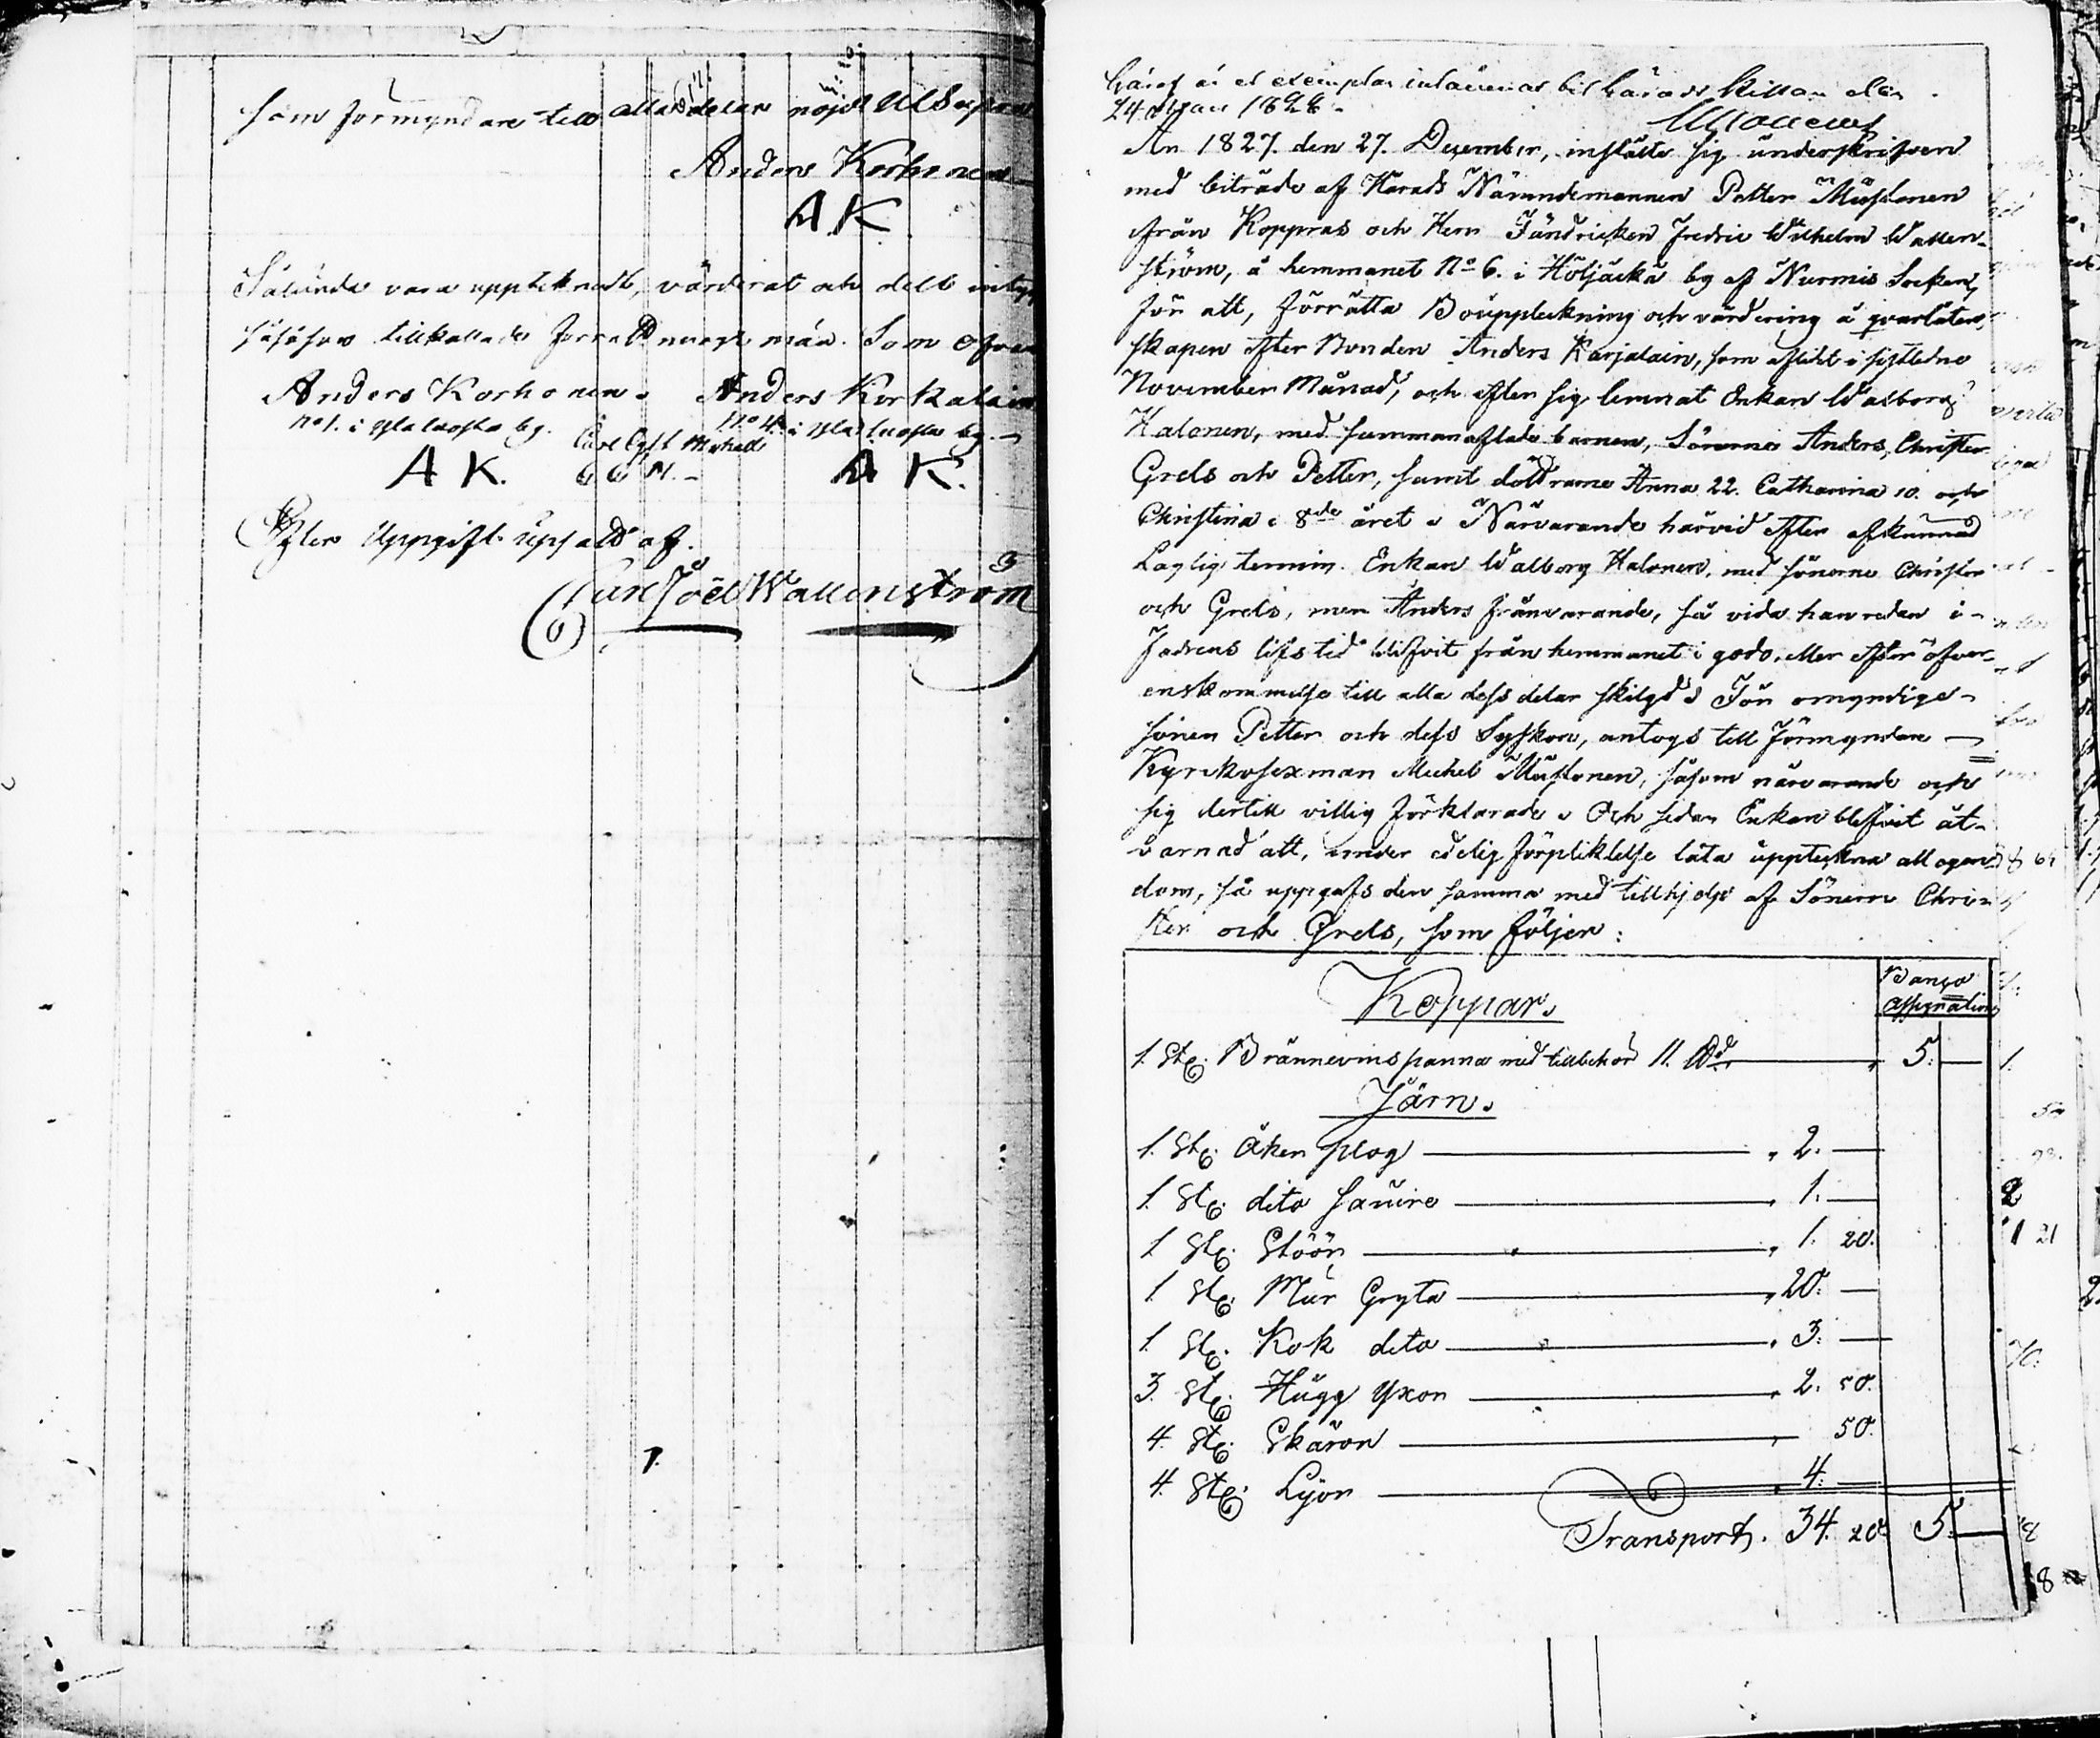 som förmyndare till alla delar nöjd Ut Supra
Anders Korhonen
A K
Sålunda vara upptecknadt, värderat och delt intyga
såsom tillkallade Förrättningsmän. Som ofvan
Anders Korhonen. Anders Korkalain
No 1. i by. No 4. i by.
Carl
A K. A K.
Efter Uppgift uppsatt af.
Carl Joel Wallenström
7.
Häraf är et exemplar inlämnat till Härads Kistan den
24 1828.
År 1827. den 27. December, instälte sig underskrifven
med biträde af Härads Nämndemannen Petter Mustonen
från Koppras och Herr Fändricken Fredric Wilhelm Wallen-
ström, å hemmanet No 6. i Höljäckä by af Nurmis Socken,
för att, förrätta Bouppteckning och värdering å qvarlåten-
skapen efter Bonden Anders Karjalain, som aflidit i sistledne
November Månad, och efter sig lemnat Enkan Walborg
Halonen, med sammanaflade barnen, Sönerne Anders, Christer
Grels och Petter, samt döttrarne Anna 22. Catharina 10. och
Christina i 8de året. Närvarande härvid efter afkunnad
Laglig termin. Enkan Walborg Halonen, med sönerne Christer
och Grels, men Anders frånvarande, så vida han redan i
Fadrens lifstid blifvit från hemmanet i godo, eller efter öfver-
enskommelse till alla dess delar skilgd. För omyndige
sönen Petter och dess Syskon, antogs till Förmyndare
Kyrkosexman Michel Mustonen, såsom närvarande och
sig dertill villig förklarade. Och sedan Enkan blifvit åt-
varnad att, under edelig förpliktelse låta uppteckna all egen-
dom, så uppgafs den samma med tillhjelp af Sönerne Chris-
ter och Grels, som följer:
Banco
Assignation
Koppar.
1. St. Brännevins panna med tillbehör 11. 5.
Järn.
1. St. Åker plog 2.
1. St. dito 1.
1 St. Stöör 1. 20.
1. St. Mur Gryta 20.
1. St. Kok dito 3.
3. St. Hugg Yxor 2. 50.
4. St. Skäror 50.
4. St. Lyör 4.
Transport. 34. 20. 5.